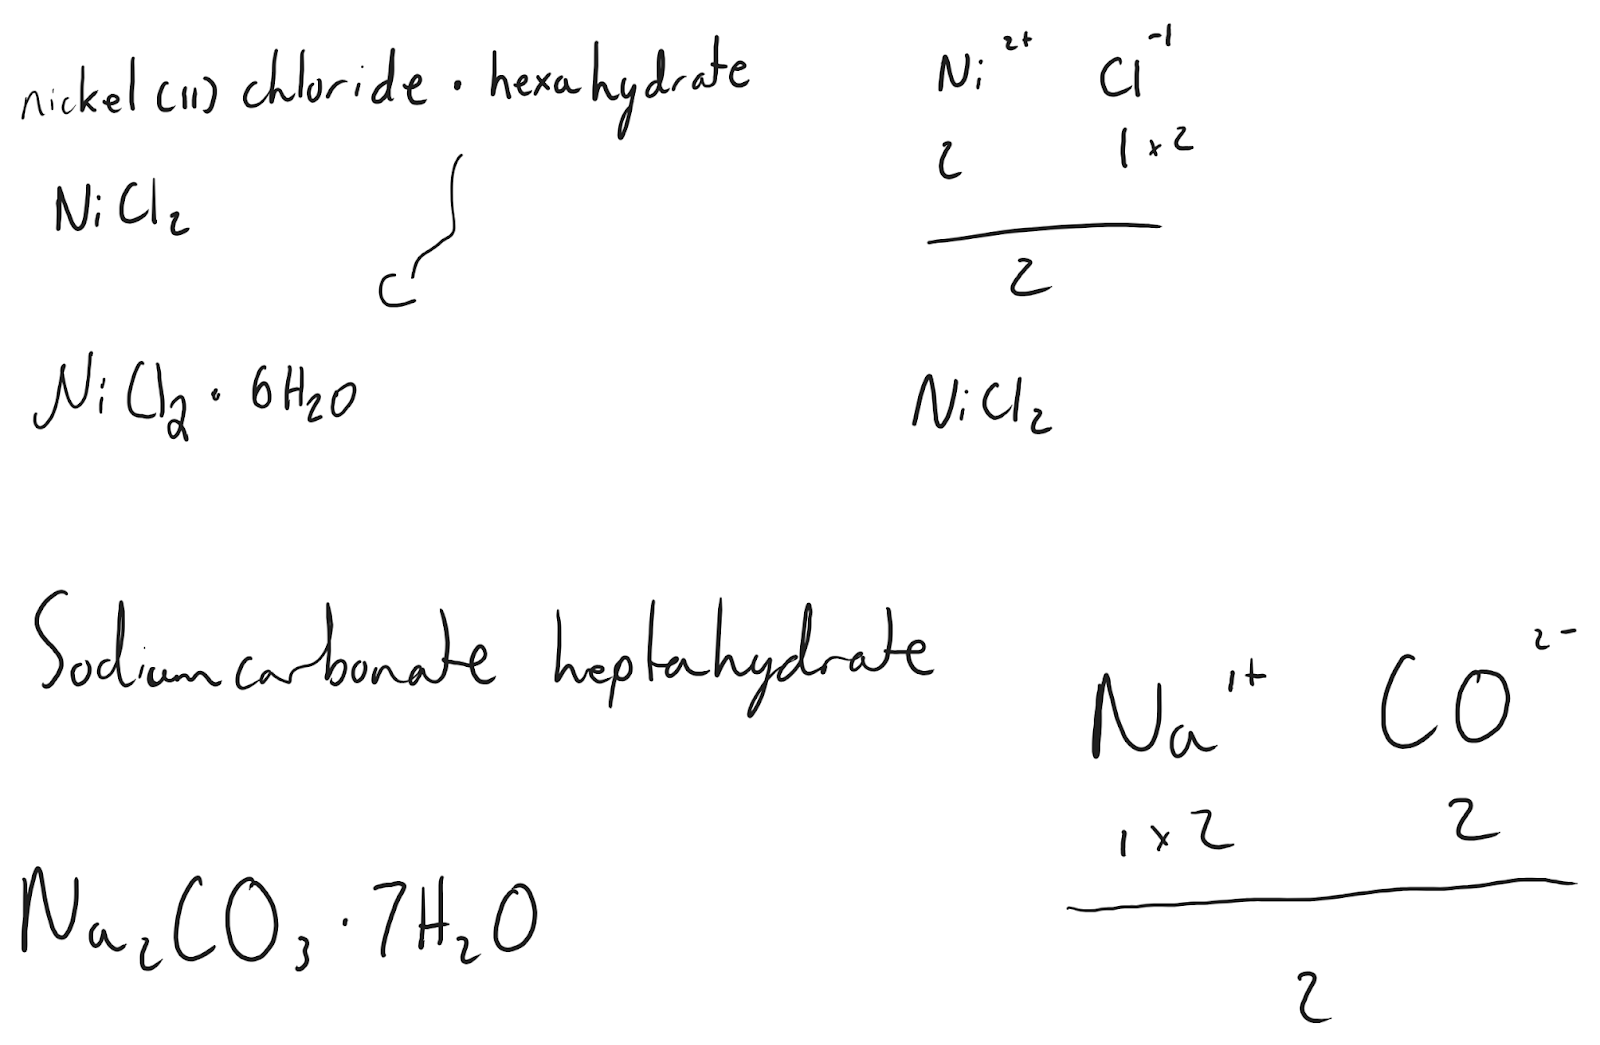 nickel (II) chloride · hexahydrate
NiCl₂
C
NiCl₂ · 6H₂O
Ni²⁺ Cl⁻¹
2 1 x 2
2
NiCl₂
Sodium carbonate heptahydrate
Na₂CO₃ · 7H₂O
Na¹⁺ CO²⁻
1 x 2 2
2